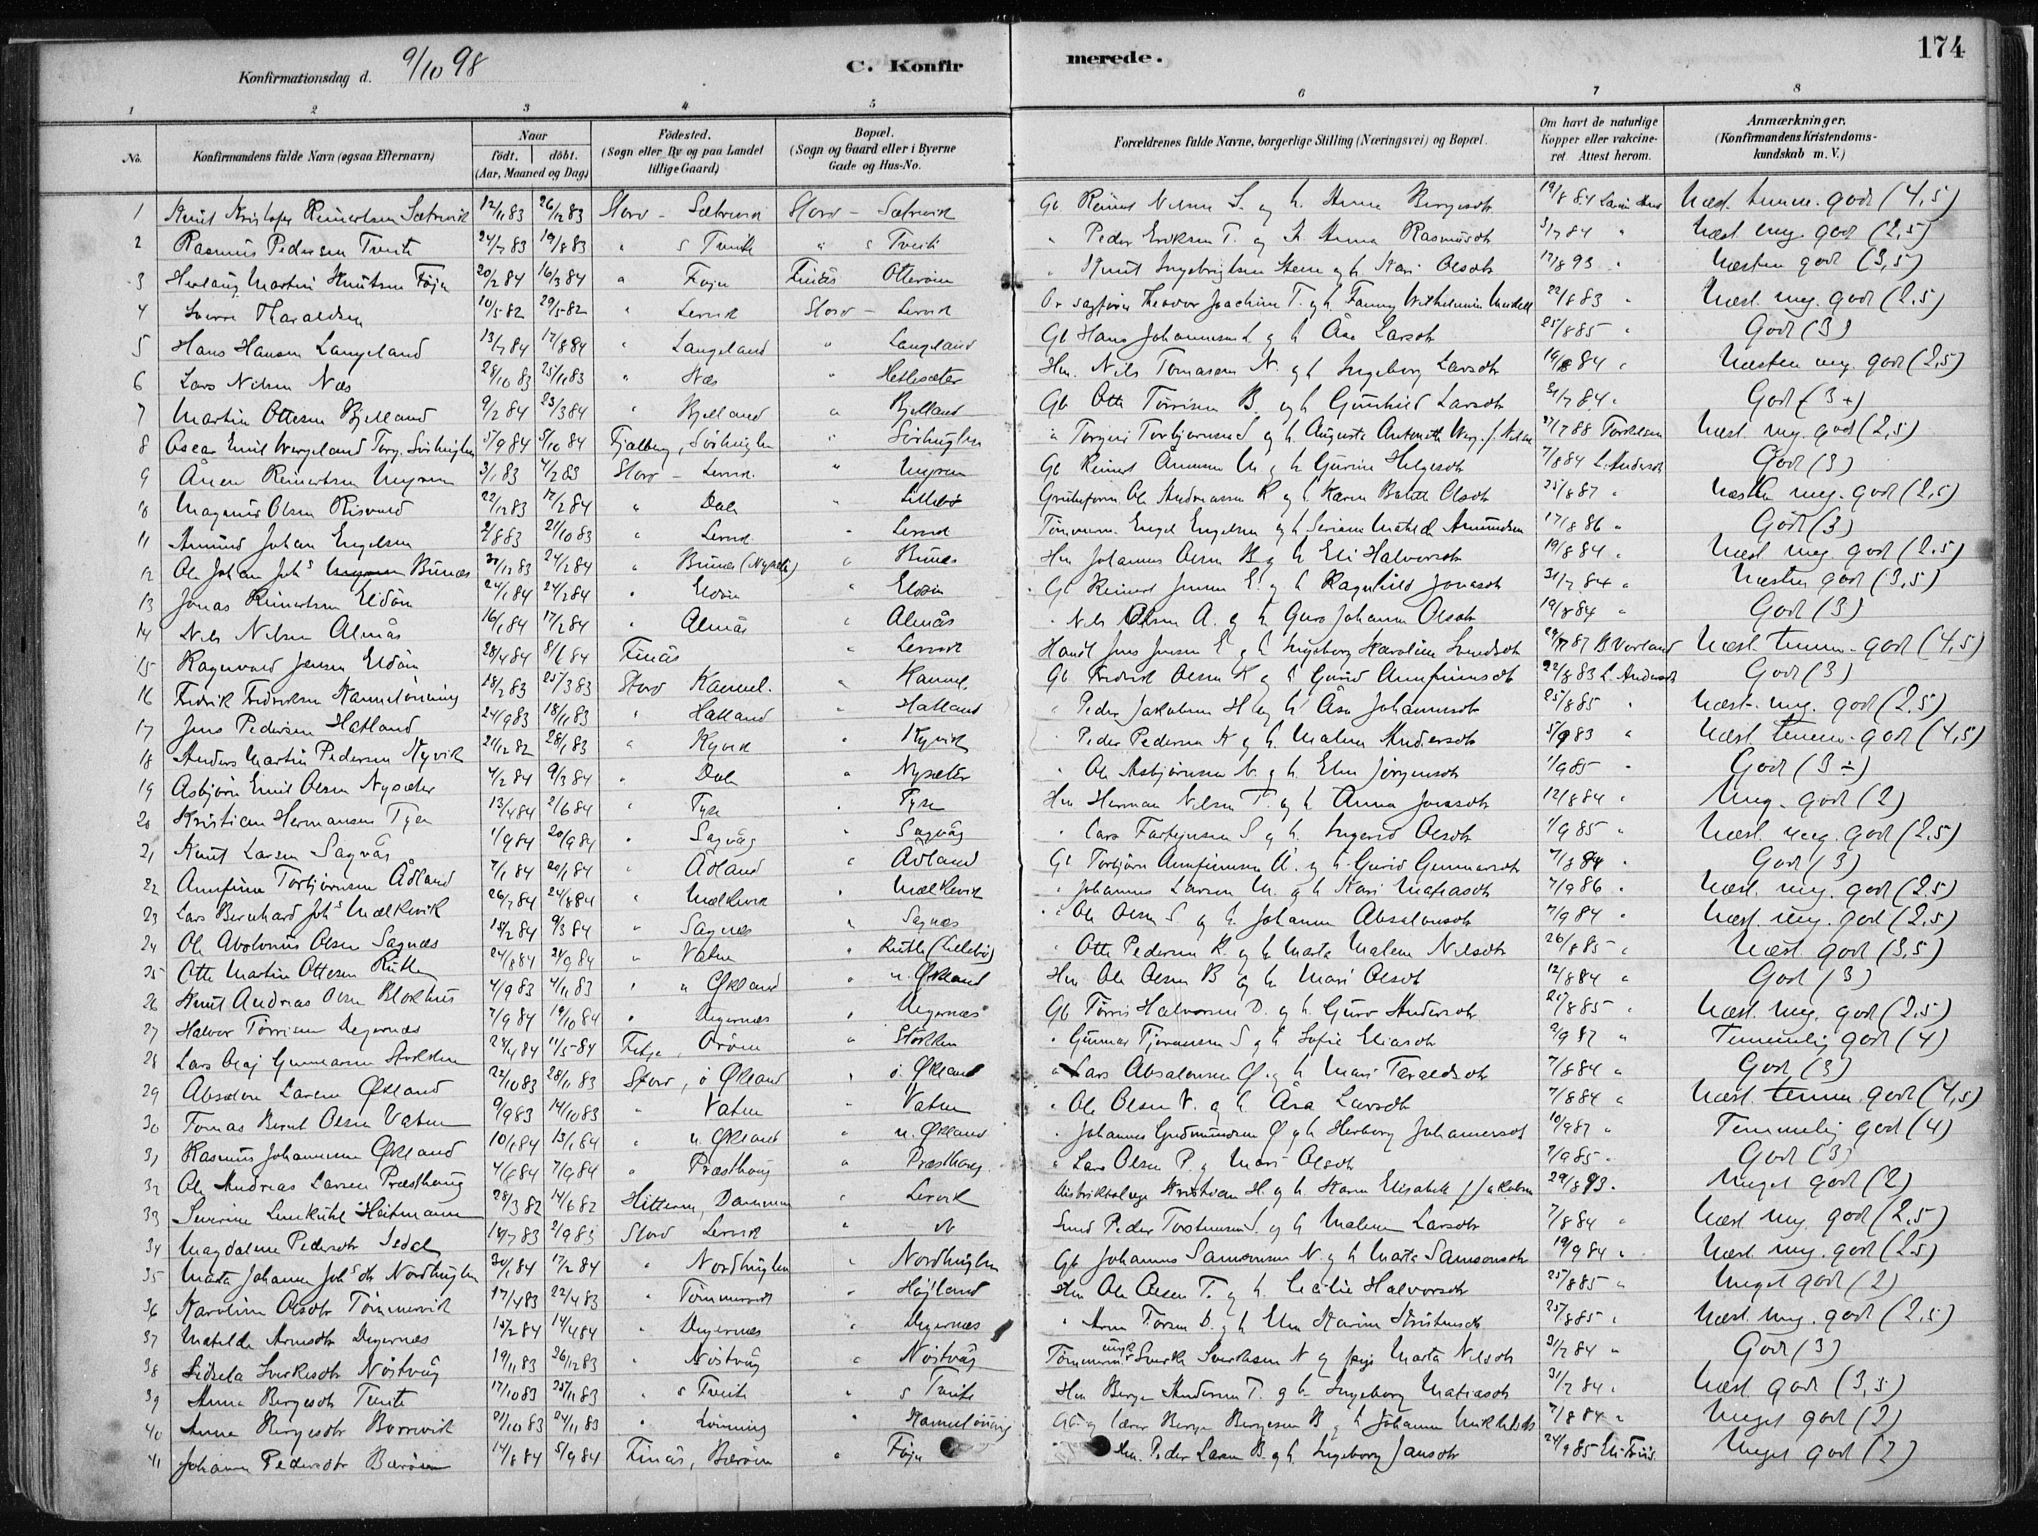 Konfirmationsdag d. 9/10 98
C. Konfirmerede.
174
1 2 3 4 5 6 7 8
No.
Konfirmandens fulde Navn (ogsaa Efternavn)
Naar født. døbt. (Aar, Maaned og Dag)
Fødested. (Sogn eller By og paa Landet tillige Gaard)
Bopæl. (Sogn og Gaard eller i Byerne Gade og Hus-No.
Forældrenes fulde Navne, borgerlige Stilling (Næringsvei) og Bopæl.
Om havt de naturlige Kopper eller vakcineret. Attest herom.
Anmærkninger. (Konfirmandens Kristendomskundskab m. V.)
1 Knut Kristofer Reinertsen Sætrevik 12/11 83 26/12 83 Stord - Sætrevik Stord - Sætrevik Gb Reinert Nilsen S. og h. Anna Bergesdtr 19/8 84 Næst. temm. god (4,5)
2 Rasmus Pedersen Tveit 24/7 83 19/8 83 " s Tveit " s Tveit " Peder Eriksen T. og h. Anna Rasmusdtr 3/7 84 " Næst. meg. god (2,5)
3 Martin Knutsen Føjn 20/2 84 16/3 84 " Føjn Finås Otterøen " Knut Ingebrigtsen og h. Kari Olsdtr 17/8 93 " Næsten god (3,5)
4 Sverre Tharaldsen 10/5-82 29/5-82 " Lervik Stord - Lervik Theodor Joachim T. og h. Fanny Wilhelmine 22/8 83 " Næst. meg. god (2,5)
5 Hans Hansen Langeland 13/7 84 17/8 84 " Langeland " Langeland Gb Hans Johannesen L og h Åsa Larsdtr 25/8 85 " God (3)
6 Lars Nilsen Næs 28/10 83 25/11 83 " Næs " Hetlesæter Hm. Nils Tomasen N. og h Ingeborg Larsdtr 19/8 84 " Næsten meg. god (2,5)
7 Martin Ottesen Bjelland 9/2 84 23/3 84 " Bjelland " Bjelland Gb Otte Tørrisen B. og h Gunhild Larsdtr 31/7 84 " God (3+)
8 Oscar Emil Wergeland Torg. Sørhuglen 5/9 84 5/10 84 Fjelberg, Sørhuglen " Sørhuglen " Torgeir Torbjørnsen S og h. Augusta Antonette 27/7 88 Torkelsen Næst. meg. god (2,5)
9 Ånen Reinertsen Myren 3/1 83 4/2 83 Stord - Lervik " Myren Gb Reinert Ånensen M og h Gurine Helgesdtr 7/8 84 L. Andersdtr God (3)
10 Magnus Olsen Risvold 22/12 83 17/2 84 " Dale " Lillebø Grubeform. Ole Andreassen R og h Karen Olsdtr 25/8 87 " Næsten meg. god (2,5)
11 Amund Johan Engelsen 2/8 83 21/10 83 " Lervik " Lervik Tømmerm. Engel Engelsen og h Serine Matilde Amundsen 17/8 86 " God (3)
12 Ole Johan Johs Bunæs 31/12 83 24/2 84 " Bunæs (Nysæter) " Bunæs Hm Johannes Olsen B og h Eli Halvorsdtr 19/8 84 " Næst. meg. god (2,5)
13 Jonas Reinertsen Eldøen 24/1 84 24/2 84 " Eldøen " Eldøen Gb Reinert Jensen E. og h Ragnhild Jonasdtr 31/7 84 " Næsten god (3,5)
14 Nils Nilsen Almås 16/1 84 17/2 84 " Almås " Almås " Nils Olsen A. og h. Guro Johanna Olsdtr 19/8 84 " God (3)
15 Ragnvald Jensen Eldøen 28/4 84 8/6 84 Finås " Lervik Handl Jens Jensen E og h Ingeborg Karoline Svendsdtr B Vorland Næst. temm. god (4,5)
16 Fredrik Fredriksen Kammelønning 18/2 83 25/3 83 Stord Kammel. " Kammel. Gb Fredrik Olsen K og h Gurid Arnfinnsdtr 22/8 83 L. Andersdtr God (3)
17 Jens Pedersen Hatland 24/9 83 18/11 83 " Hatland " Hatland " Peder Jakobsen H og h Åsa Johannesdtr 25/8 85 " Næst. meg. god (2,5)
18 Anders Martin Pedersen Kyvik 21/12 82 28/1 83 " Kyvik " Kyvik " Peder Pedersen K og h. Malena Andersdtr 5/9 83 " Næst temm. god (4,5)
19 Asbjørn Emil Olsen Nysæter 4/2 84 9/3 84 " Dale " Nysæter " Ole Asbjørnsen N. og h. Elen Jørgensdtr 1/9 85 " God (3÷)
20 Kristian Hermansen Tyse 13/4 84 2/6 84 " Tyse " Tyse Hm Herman Nilsen T. og h. Anna Jonsdtr 12/8 84 " Meg. god (2)
21 Knut Larsen Sagvåg 1/9 84 20/9 84 " Sagvåg " Sagvåg " Lars Fartejnsen S og h. Ingerid Olsdtr 1/9 85 " Næst. meg. god (2,5)
22 Arnfinn Torbjørnsen Ådland 7/1 84 20/1 84 " Ådland " Ådland Gb Torbjørn Arnfinnsen Å. og h Gurid Gunnarsdtr 7/8 84 " God (3)
23 Lars Bernhard Johs Mælkevik 26/7 84 24/8 84 " Mælkevik " Mælkevik " Johannes Larsen M. og h Kari Matiasdtr 7/9 86 " Næst. meg. god (2,5)
24 Ole Olsen Sagnæs 15/2 84 9/3 84 " Sagnæs " Sagnæs " Ole Olsen S og h. Johanna Absalonsdtr 7/9 84 " Næst. meg. god (2,5)
25 Otte Martin Ottesen Rutle 24/8 84 21/9 84 " Vatne " Rutle (Lillebø) " Otte Pedersen R. og h Marta Malene Nilsdtr 26/8 85 " Næst. god (3,5)
26 Knut Andreas Olsen Blokhus 4/9 83 4/11 83 " n Økland " n. Økland Hm Ole Olsen B og h Mari Olsdtr 12/8 84 " God (3)
27 Halvor Tørrisen Degernæs 7/9 84 19/10 84 " Degernæs " Degernæs Gb Tørris Halvorsen D. og h Guro Andersdtr 25/8 85 " Næst. meg. god (2,5)
28 Lars Olaj Gunnarsen Stokken 28/4 84 11/5-84 Fitje, " Stokken " Gunnar S og h Sofie Eliasdtr 2/9 87 " Temmelig god (4)
29 Absalon Larsen Økland 22/10 83 28/11 83 Stord, ö Økland " ö Økland " Lars Absalonsen Ø. og h Mari Taraldsdtr 7/8 84 " God (3)
30 Tomas Bernt Olsen Vatne 9/9 83 14/10 83 " Vatne " Vatne " Ole Olsen V. og h Åsa Larsdtr 7/8 84 " Næst. temm. god (4,5)
31 Rasmus Johannesen Økland 10/1 84 13/1 84 " n. Økland " n. Økland " Johannes Gudmundsen Ø og h Herborg Johannesdt 10/9 87 " Temmelig god (4)
32 Ole Andreas Larsen Præsthaug 4/8 84 7/9 84 " Præsthaug " Præsthaug " Lars Olsen P. og Mari Olsdtr 2/9 85 " God (3)
33 Severine Lemkuhl Heitmann 28/3 82 14/6 82 Hitteren, " Lervik Distriktslæge Kristian H. og h Karen Elisabeth f Jakobsen 29/8 93 " Meget god (2)
34 Magdalene Pedersdtr 14/7 83 2/9 83 Stord Lervik " Smed Peder S. og h Malene Larsdtr 7/8 84 " Næst. meg. god (2,5)
35 Marta Johanna Johsdtr Nordhuglen 20/1 84 17/2 84 " Nordhuglen " Nordhuglen Gb Johannes Samsonsen N. og h Marta Samsonsdtr 19/9 84 " Næst. meg. god (2,5)
36 Karoline Olsdtr Tømmervik 17/4 83 22/4 83 " Tømmervik " Højland Hm Ole Olsen T. og h. Cecilie Halvorsdtr 25/8 85 " Meget god (2)
37 Matilde Arnesdtr Degernæs 15/2 84 14/4 84 " Degernæs " Degernæs " Arne D. og h Elen Karine 25/8 85 " Næst. meg. god (2,5)
38 Sidsela Sverkesdtr Nøstvåg 19/11 83 26/12 83 " Nøstvåg " Nøstvåg Tømmerm ungk Sverke Sverkesen N og pige Marta Nilsdtr 3/2 84 " God (3)
39 Anna Bergesdtr Tveite 17/10 83 25/11 83 " s Tveite " s Tveite Hm Berge Andersen T. og h Ingeborg Matiasdtr 31/7 84 " Næst god (3,5)
40 Anna Bergesdtr Borrevik 21/10 83 24/11 83 " Lönning " Kamelönning Gb og lærer Berge Bergesen B og h Johanna Mikkelsdtr 7/8 84 " Meget god (2)
41 Johanna Pedersdtr Bærøen 14/8 84 5/9 84 Finås, Bærøen " Føjn Hm. Peder Larsen B. og h Ingeborg Jansdtr 24/9 85 Meget god (2)